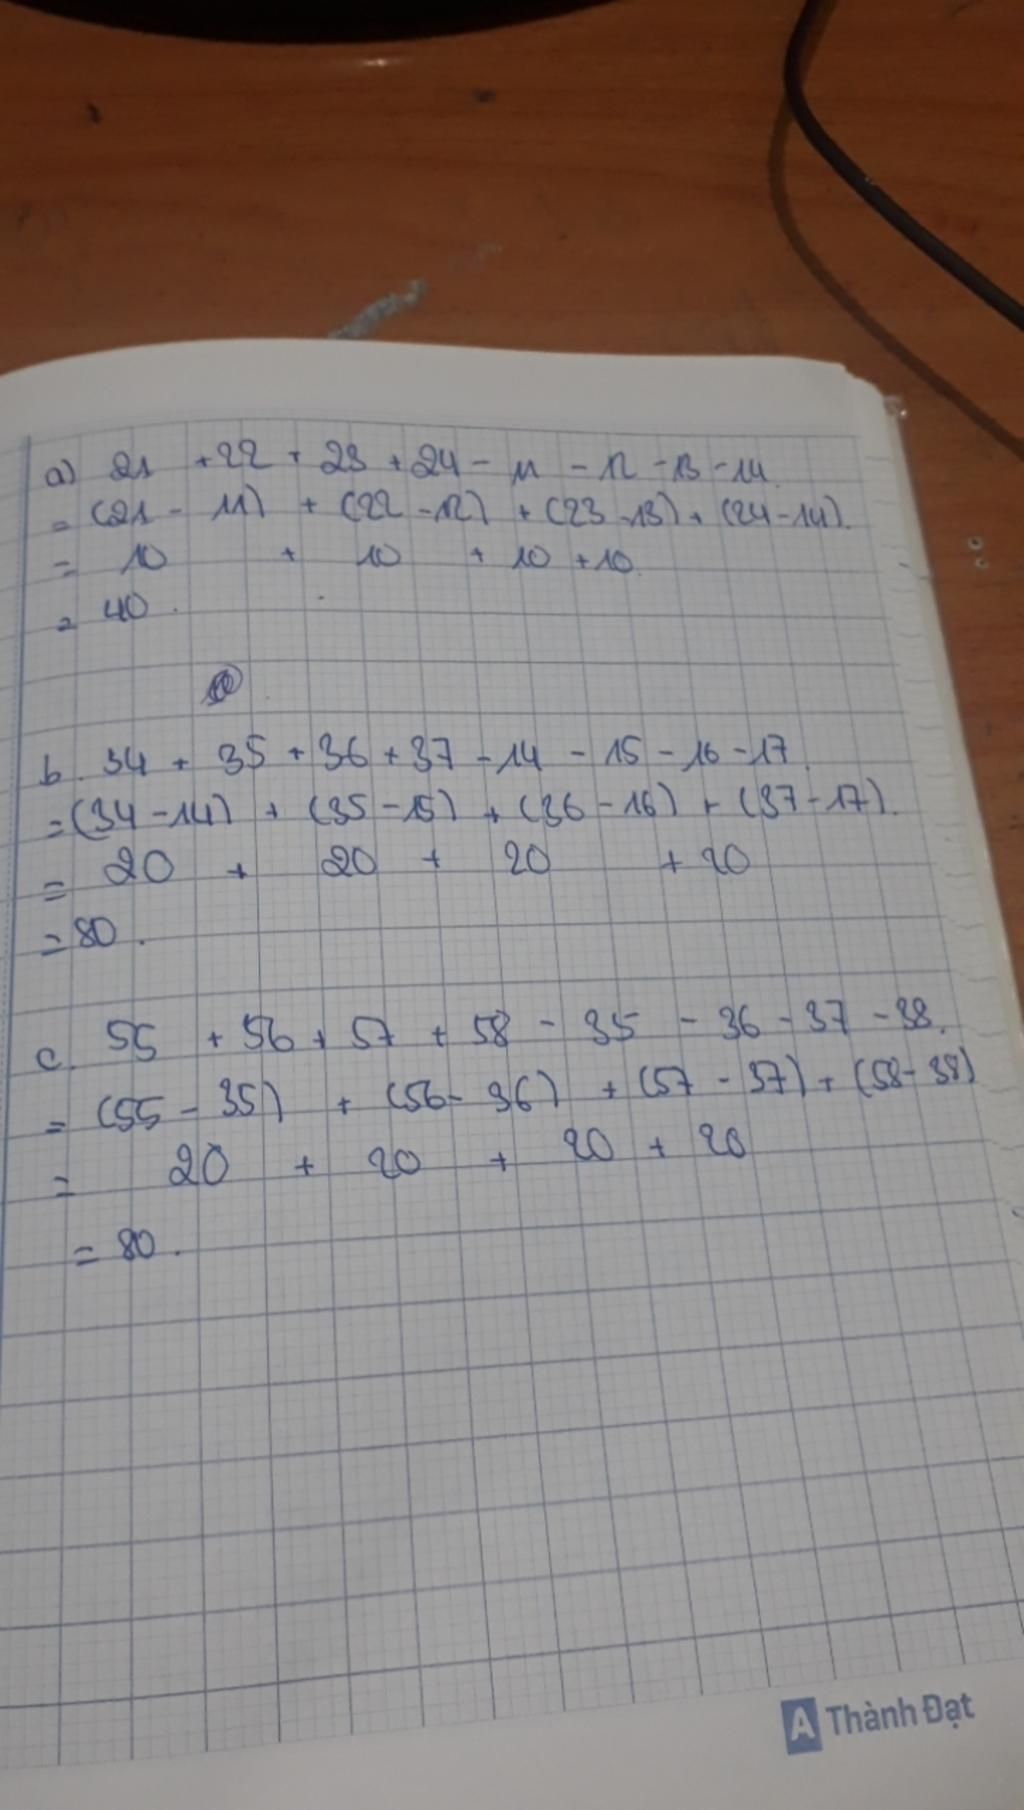 a) 21 + 22 + 23 + 24 - 11 - 12 - 13 - 14
= (21 - 11) + (22 - 12) + (23 - 13) + (24 - 14).
= 10 + 10 + 10 + 10
= 40.
b. 34 + 35 + 36 + 37 - 14 - 15 - 16 - 17
= (34 - 14) + (35 - 15) + (36 - 16) + (37 - 17).
= 20 + 20 + 20 + 20
= 80.
c. 55 + 56 + 57 + 58 - 35 - 36 - 37 - 38.
= (55 - 35) + (56 - 36) + (57 - 37) + (58 - 38)
= 20 + 20 + 20 + 20
= 80.
A Thành Đạt